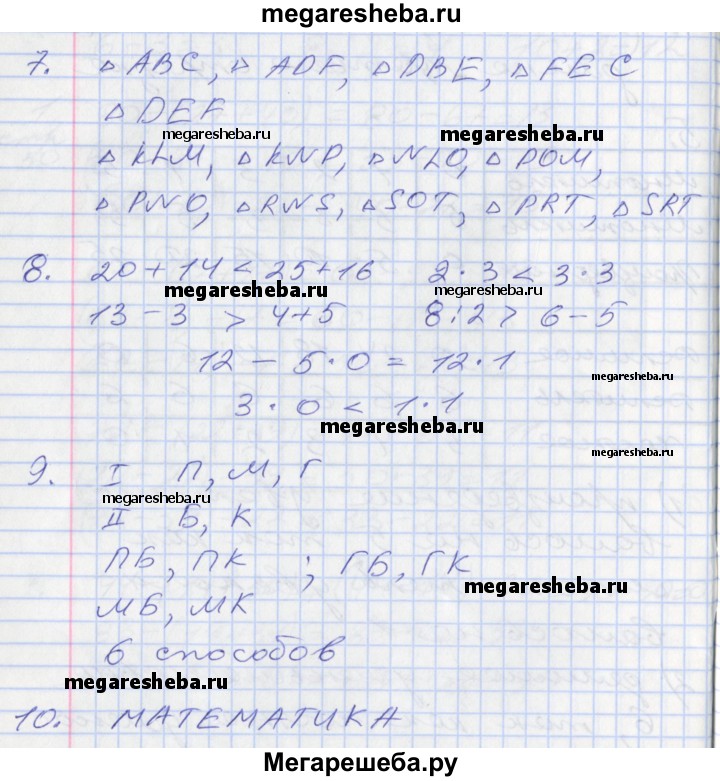 megaresheba.ru
7. △ ABC, △ ADF, △ DBE, △ FEC
△ DEF
megaresheba.ru megaresheba.ru
△ KLM, △ KNP, △ NLO, △ POM,
△ PNO, △ RNS, △ SOT, △ PRT, △ SRT
8. 20 + 14 < 25 + 16 2 · 3 < 3 · 3
megaresheba.ru megaresheba.ru
13 - 3 > 4 + 5 8 : 2 > 6 - 5
12 - 5 · 0 = 12 · 1
megaresheba.ru
3 · 0 < 1 · 1
megaresheba.ru
9. I П, М, Г
megaresheba.ru
II Б, К
ПБ, ПК ; ГБ, ГК
megaresheba.ru
МБ, МК
6 способов
megaresheba.ru
10. МАТЕМАТИКА
Мегарешеба.ру